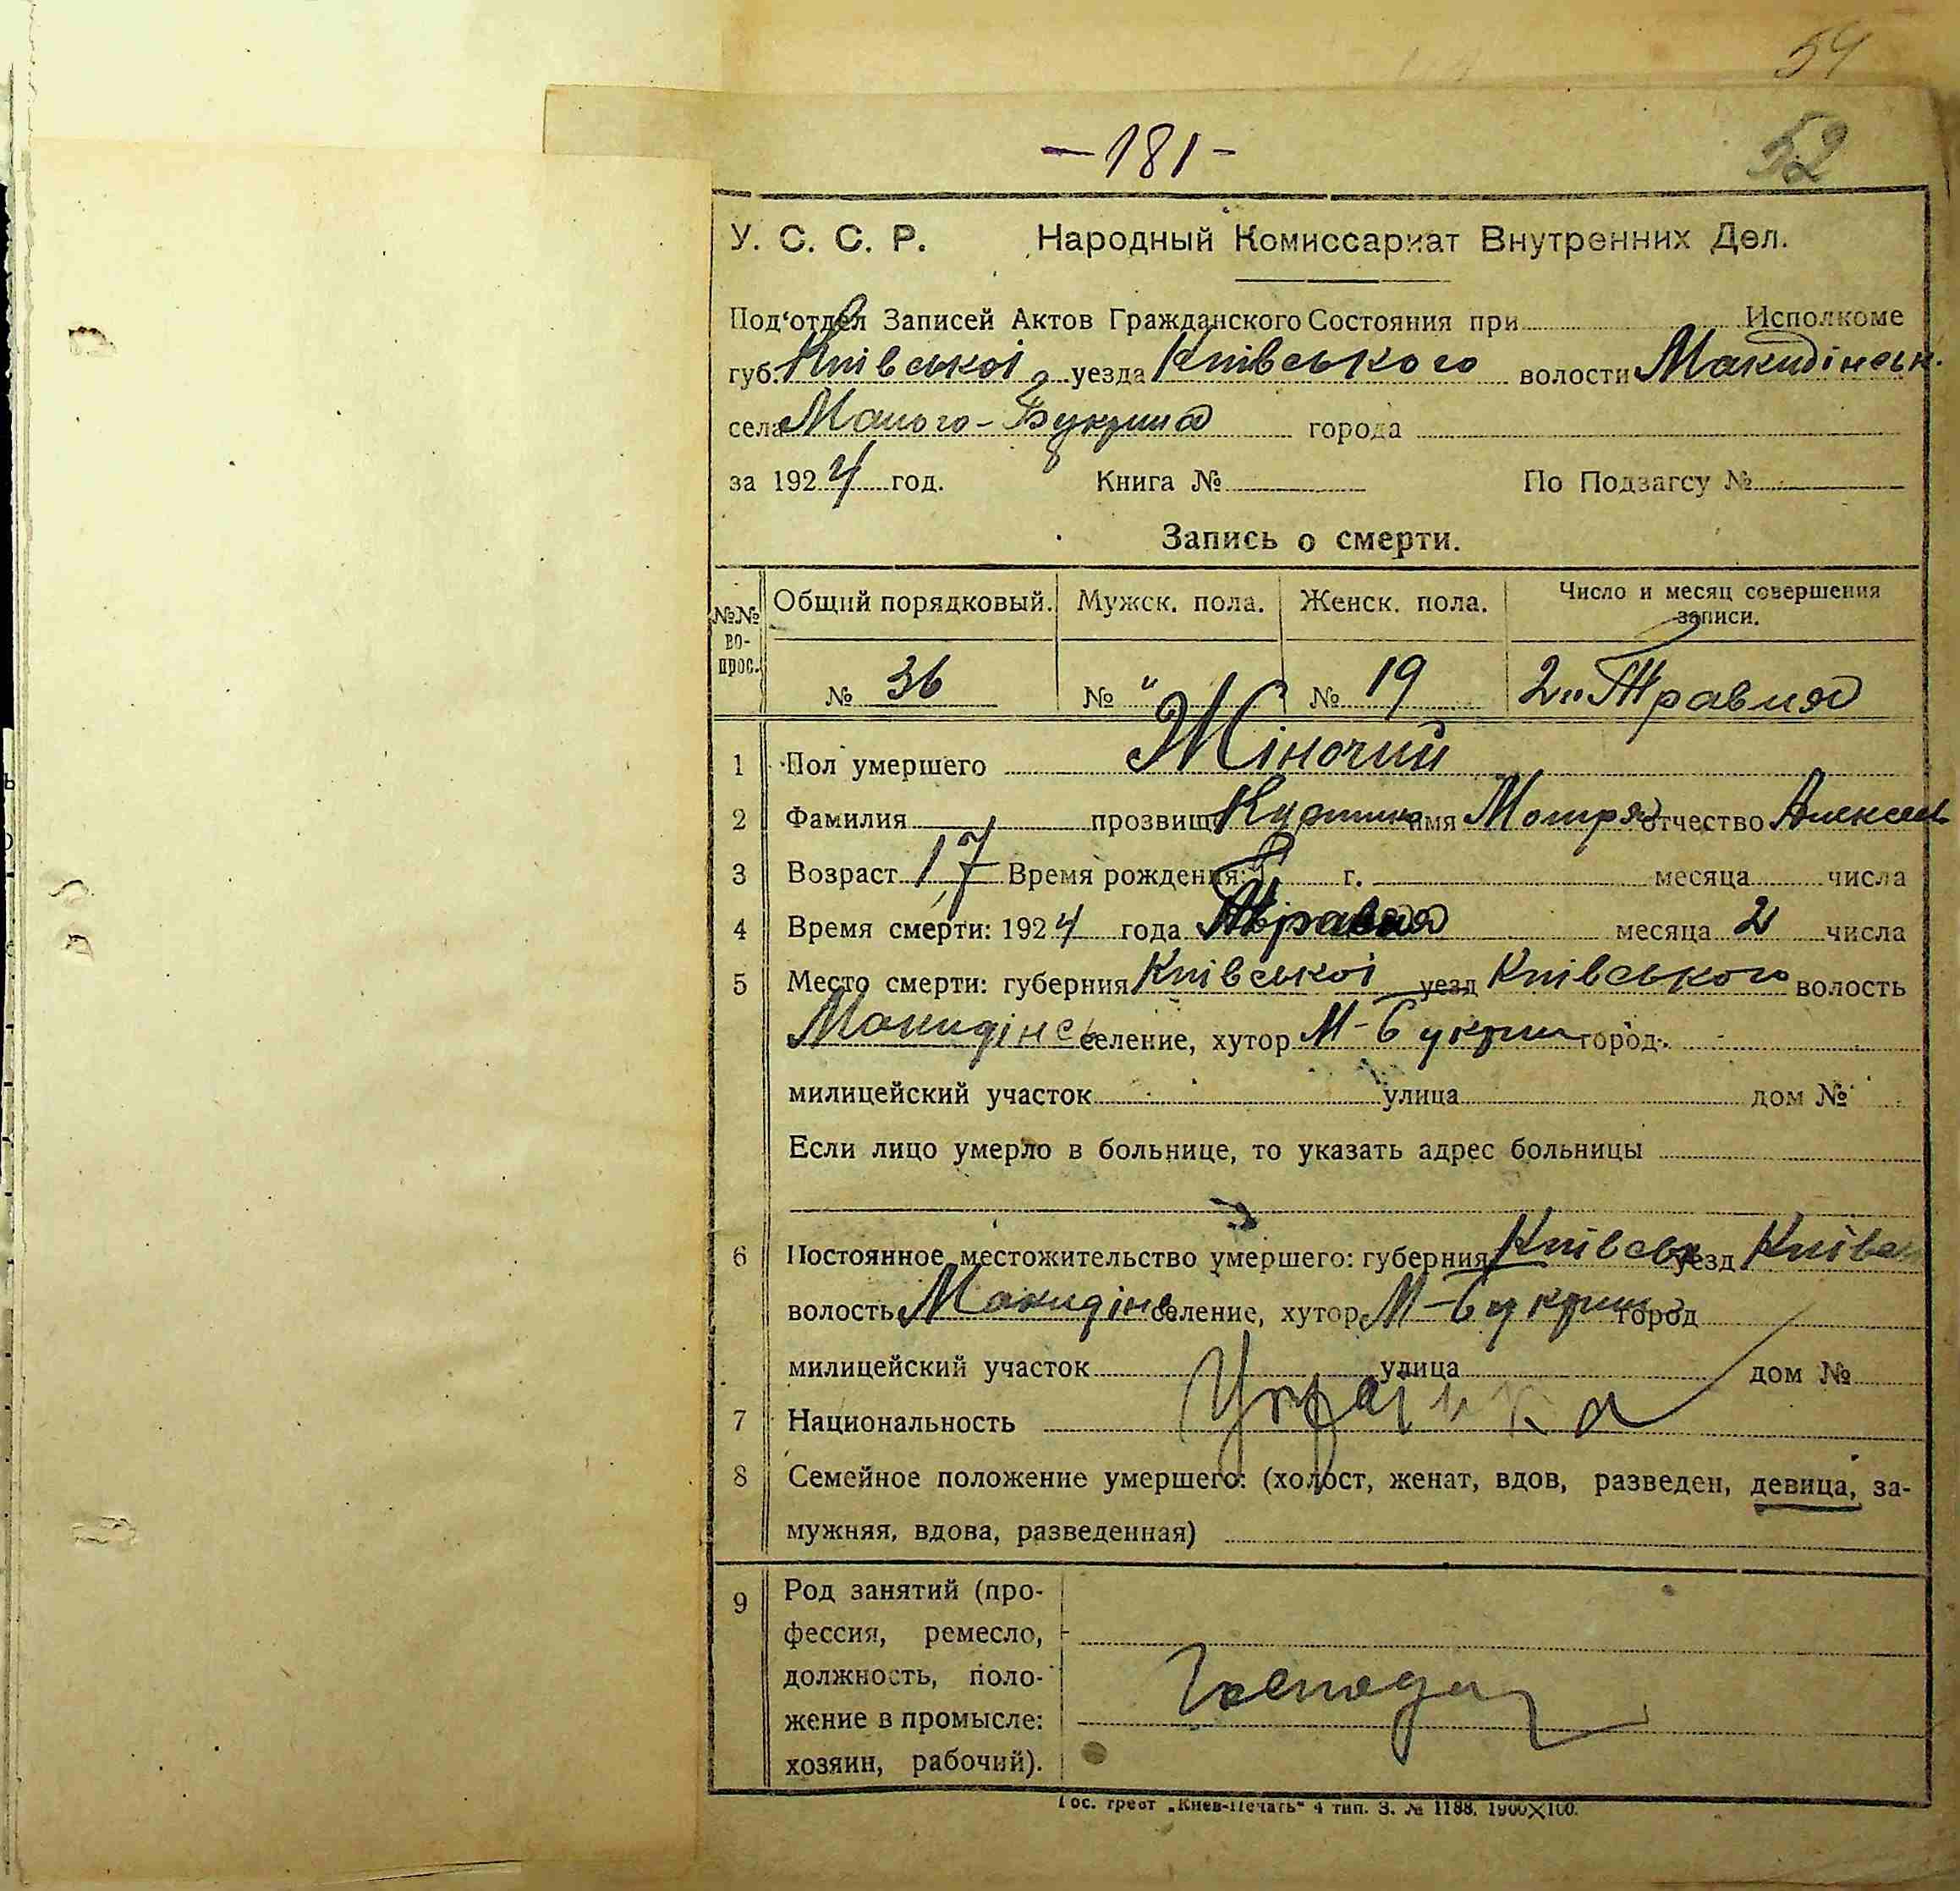 54
- 181 -
52
У. С. С. Р. Народный Комиссариат Внутренних Дел.
Под'отдел Записей Актов Гражданского Состояния при Исполкоме
губ. Київської уезда Київського волости Макидінськ.
села Малого-Букрина города
за 1924 год. Книга № По Подзагсу №
Запись о смерти.
№№ во-прос. Общий порядковый. Мужск. пола. Женск. пола. Число и месяц совершения записи.
№ 36 № " № 19 2 "Травня
1 Пол умершего Жіночий
2 Фамилия прозвищ имя Мотря отчество Алексеев
3 Возраст 17 Время рождения: г. месяца числа
4 Время смерти: 1924 года Травня месяца 2 числа
5 Место смерти: губерния Київської уезд Київського волость
Макидінс селение, хутор М-Букрин город
милицейский участок улица дом №
Если лицо умерло в больнице, то указать адрес больницы
6 Постоянное местожительство умершего: губерния Київськ уезд Київськ
волость Макидінс селение, хутор М-Букрин город
милицейский участок улица дом №
7 Национальность Українка
8 Семейное положение умершего: (холост, женат, вдов, разведен, девица, за-
мужняя, вдова, разведенная)
9 Род занятий (про-
фессия, ремесло,
должность, поло-
жение в промысле:
хозяин, рабочий).
Гос. трест „Киев-Печать" 4 тип. З. № 1188. 1900×100.